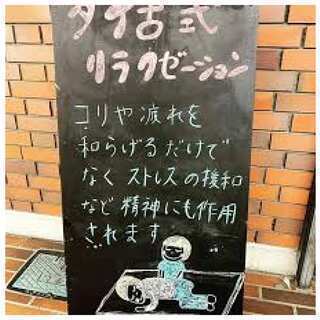 タイ古式
リラクゼーション
コリや疲れを
和らげるだけで
なくストレスの緩和
など精神にも作用
されます